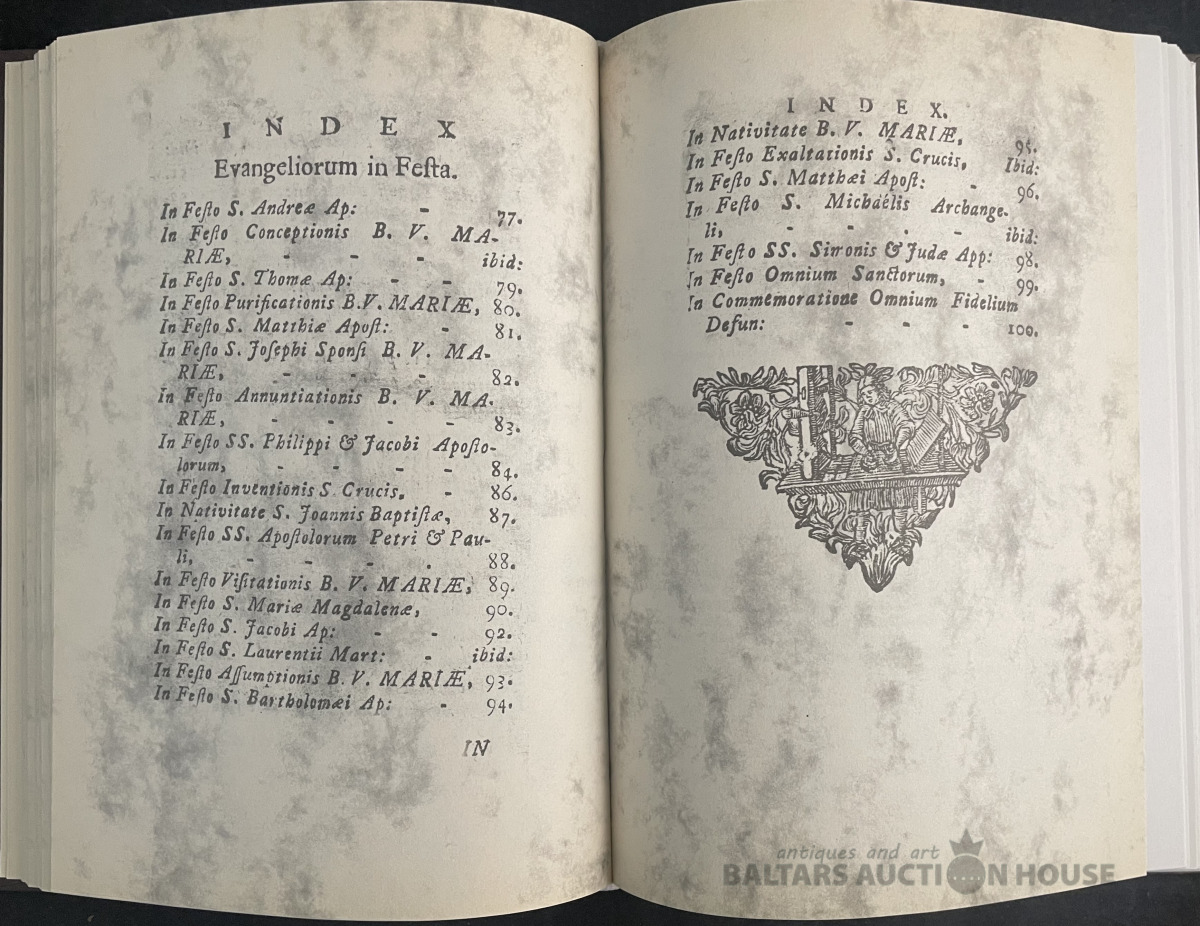 I N D E X
Evangeliorum in Feſta.
In Feſto S. Andreæ Ap: - 77.
In Feſto Conceptionis B. V. MA-
RIÆ, - - - ibid:
In Feſto S. Thomæ Ap: - - 79.
In Feſto Purificationis B.V. MARIÆ, 80.
In Feſto S. Matthiæ Apoſt: - 81.
In Feſto S. Joſephi Sponſi B. V. MA-
RIÆ, - - - 82.
In Feſto Annuntiationis B. V. MA-
RIÆ, - - - - 83.
In Feſto SS. Philippi & Jacobi Apoſto-
lorum, - - - - 84.
In Feſto Inventionis S. Crucis, - 86.
In Nativitate S. Joannis Baptiſtæ, 87.
In Feſto SS. Apoſtolorum Petri & Pau-
li, - - - - 88.
In Feſto Viſitationis B. V. MARIÆ, 89.
In Feſto S. Mariæ Magdalenæ, 90.
In Feſto S. Jacobi Ap: - - 92.
In Feſto S. Laurentii Mart: - ibid:
In Feſto Aſſumptionis B. V. MARIÆ, 93.
In Feſto S. Bartholomæi Ap: - 94.
IN
I N D E X.
In Nativitate B. V. MARIÆ, 95.
In Feſto Exaltationis S. Crucis, Ibid:
In Feſto S. Matthæi Apoſt: - 96.
In Feſto S. Michaélis Archange-
li, - - - - ibid:
In Feſto SS. Simonis & Judæ App: 98.
In Feſto Omnium Sanctorum, - 99.
In Commemoratione Omnium Fidelium
Defun: - - - 100.
antiques and art
BALTARS AUCTION HOUSE